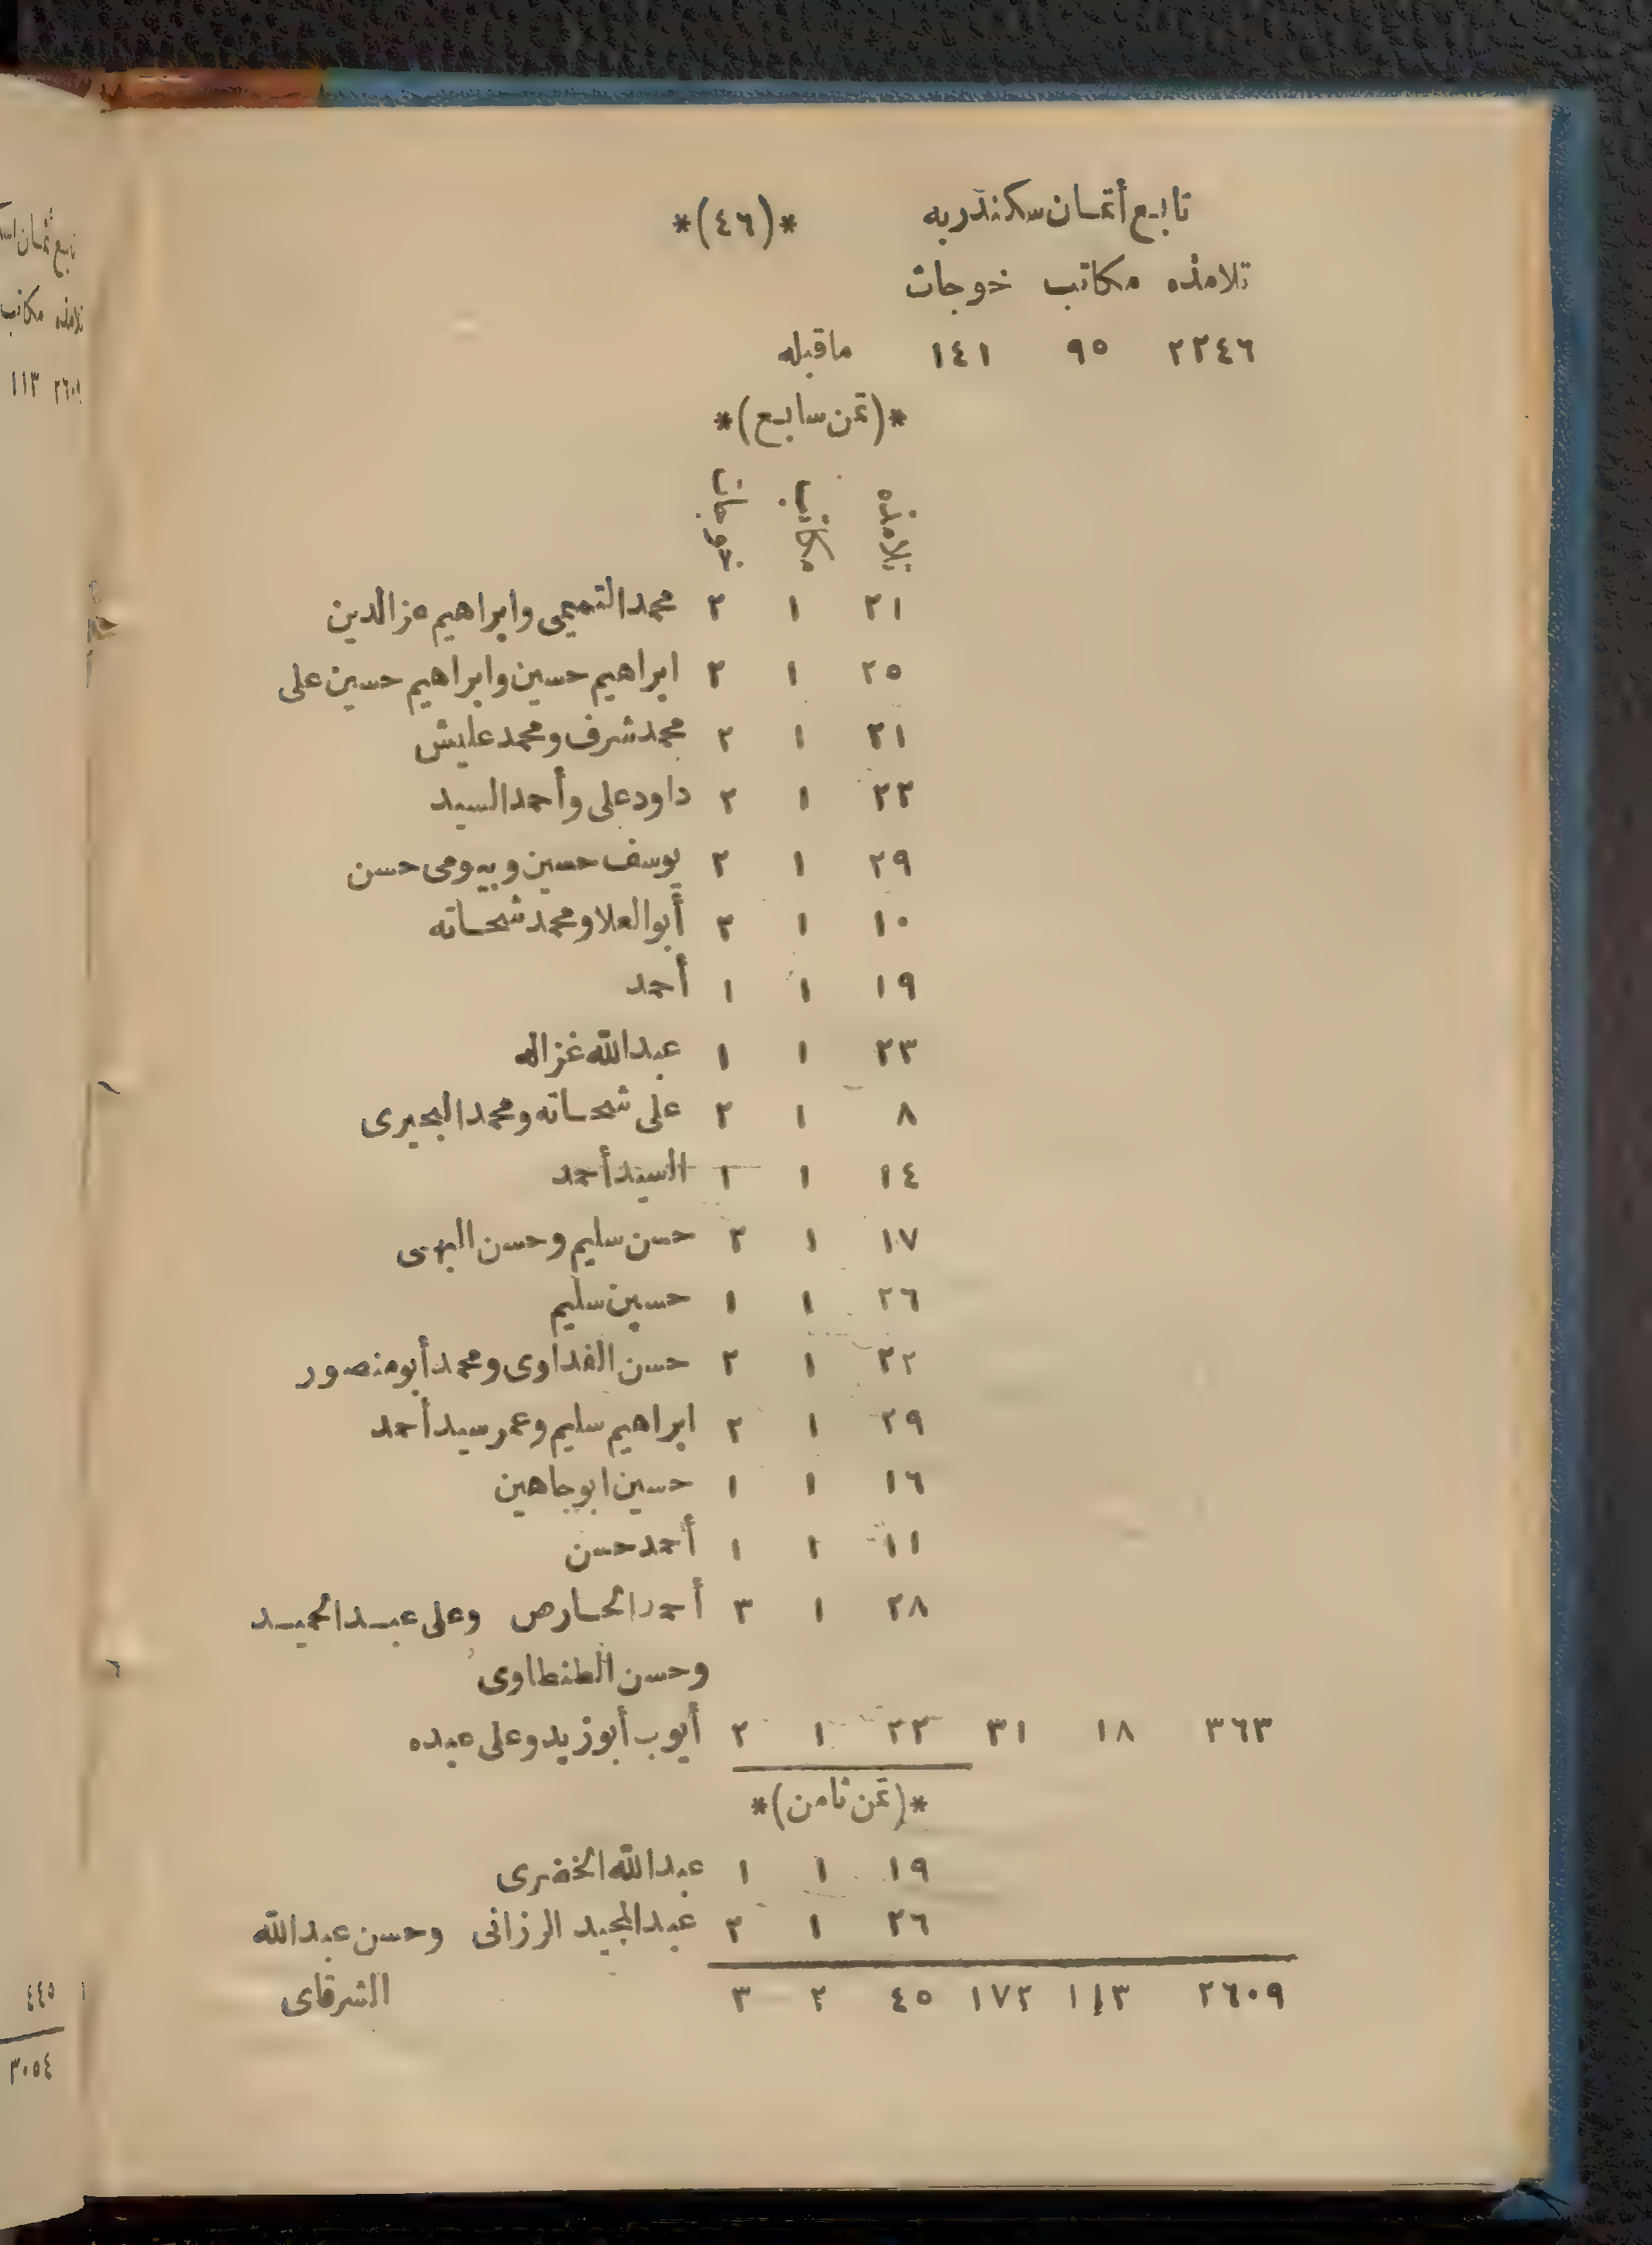 تابع أثمان سكندريه *(٤٦)*
تلامذه مكاتب خوجات
٢٢٤٦ ٩٥ ١٤١ ماقبله
*(ثمن سابع)*
تلامذه مكاتب خوجات
٢١ ١ ٢ محمد التميمى وابراهيم عز الدين
٢٥ ١ ٢ ابراهيم حسين وابراهيم حسين على
٢١ ١ ٢ محمد شرف ومحمد عليش
٢٢ ١ ٢ داود على وأحمد السيد
٢٩ ١ ٢ يوسف حسين وبيومى حسن
١٠ ١ ٢ أبو العلا ومحمد شحاته
١٩ ١ ١ أحمد
٢٣ ١ ١ عبد الله غزاله
٨ ١ ٢ على شحاته ومحمد البحيرى
١٤ ١ ١ السيد أحمد
١٧ ١ ٢ حسن سليم وحسن البهى
٢٦ ١ ١ حسين سليم
٢٢ ١ ٢ حسن الفداوى ومحمد أبو منصور
٢٩ ١ ٢ ابراهيم سليم وعمر سيد أحمد
١٦ ١ ١ حسين ابو جاهين
١١ ١ ١ أحمد حسن
٢٨ ١ ٣ أحمد الحارص وعلى عبد الحميد
وحسن الطنطاوى
٣٦٣ ١٨ ٣١ ٢٢ ١ ٢ أيوب أبو زيد وعلى عبده
*(ثمن ثامن)*
١٩ ١ ١ عبد الله الخضرى
٢٦ ١ ٢ عبد المجيد الرزانى وحسن عبد الله
٢٦٠٩ ١١٣ ١٧٢ ٤٥ ٢ ٣ الشرقاى
تابع ثمان
تلامذه مكاتب
٢٦٠٩ ١١٣
٤٤٥
٣٠٥٤